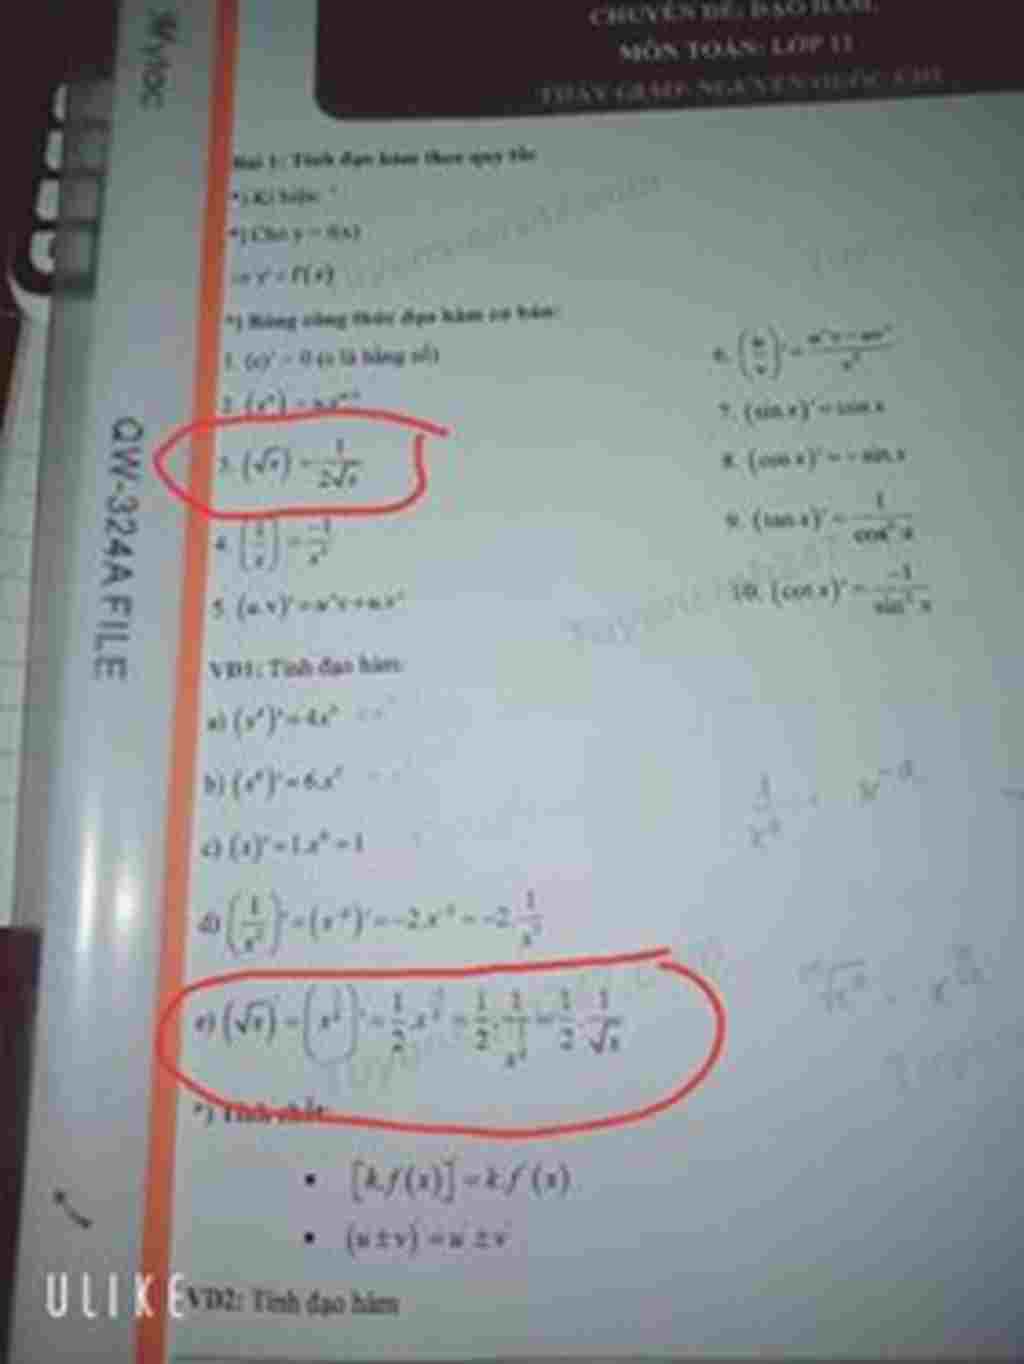 CHUYÊN ĐỀ: ĐẠO HÀM.
MÔN TOÁN: LỚP 11
THẦY GIÁO: NGUYỄN QUỐC CHÍ
Bài 1: Tính đạo hàm theo quy tắc
*) Kí hiệu: '
*) Cho y = f(x)
⇒ y' = f'(x)
*) Bảng công thức đạo hàm cơ bản:
1. (c)' = 0 (c là hằng số)
2. (xⁿ)' = n.xⁿ⁻¹
3. (√x)' = 1/(2√x)
4. (1/x)' = -1/x²
5. (u.v)' = u'v + u.v'
6. (u/v)' = (u'v - uv')/v²
7. (sin x)' = cos x
8. (cos x)' = - sin x
9. (tan x)' = 1/cos² x
10. (cot x)' = -1/sin² x
VD1: Tính đạo hàm:
a) (x⁴)' = 4.x³
b) (x⁶)' = 6.x⁵
c) (x)' = 1.x⁰ = 1
d) (1/x²)' = (x⁻²)' = -2.x⁻³ = -2.1/x³
e) (√x)' = (x^(1/2))' = 1/2.x^(-1/2) = 1/2.1/x^(1/2) = 1/2.1/√x
*) Tính chất:
• [k.f(x)]' = k.f'(x)
• (u ± v)' = u' ± v'
VD2: Tính đạo hàm
QW-324A FILE
ULIKE